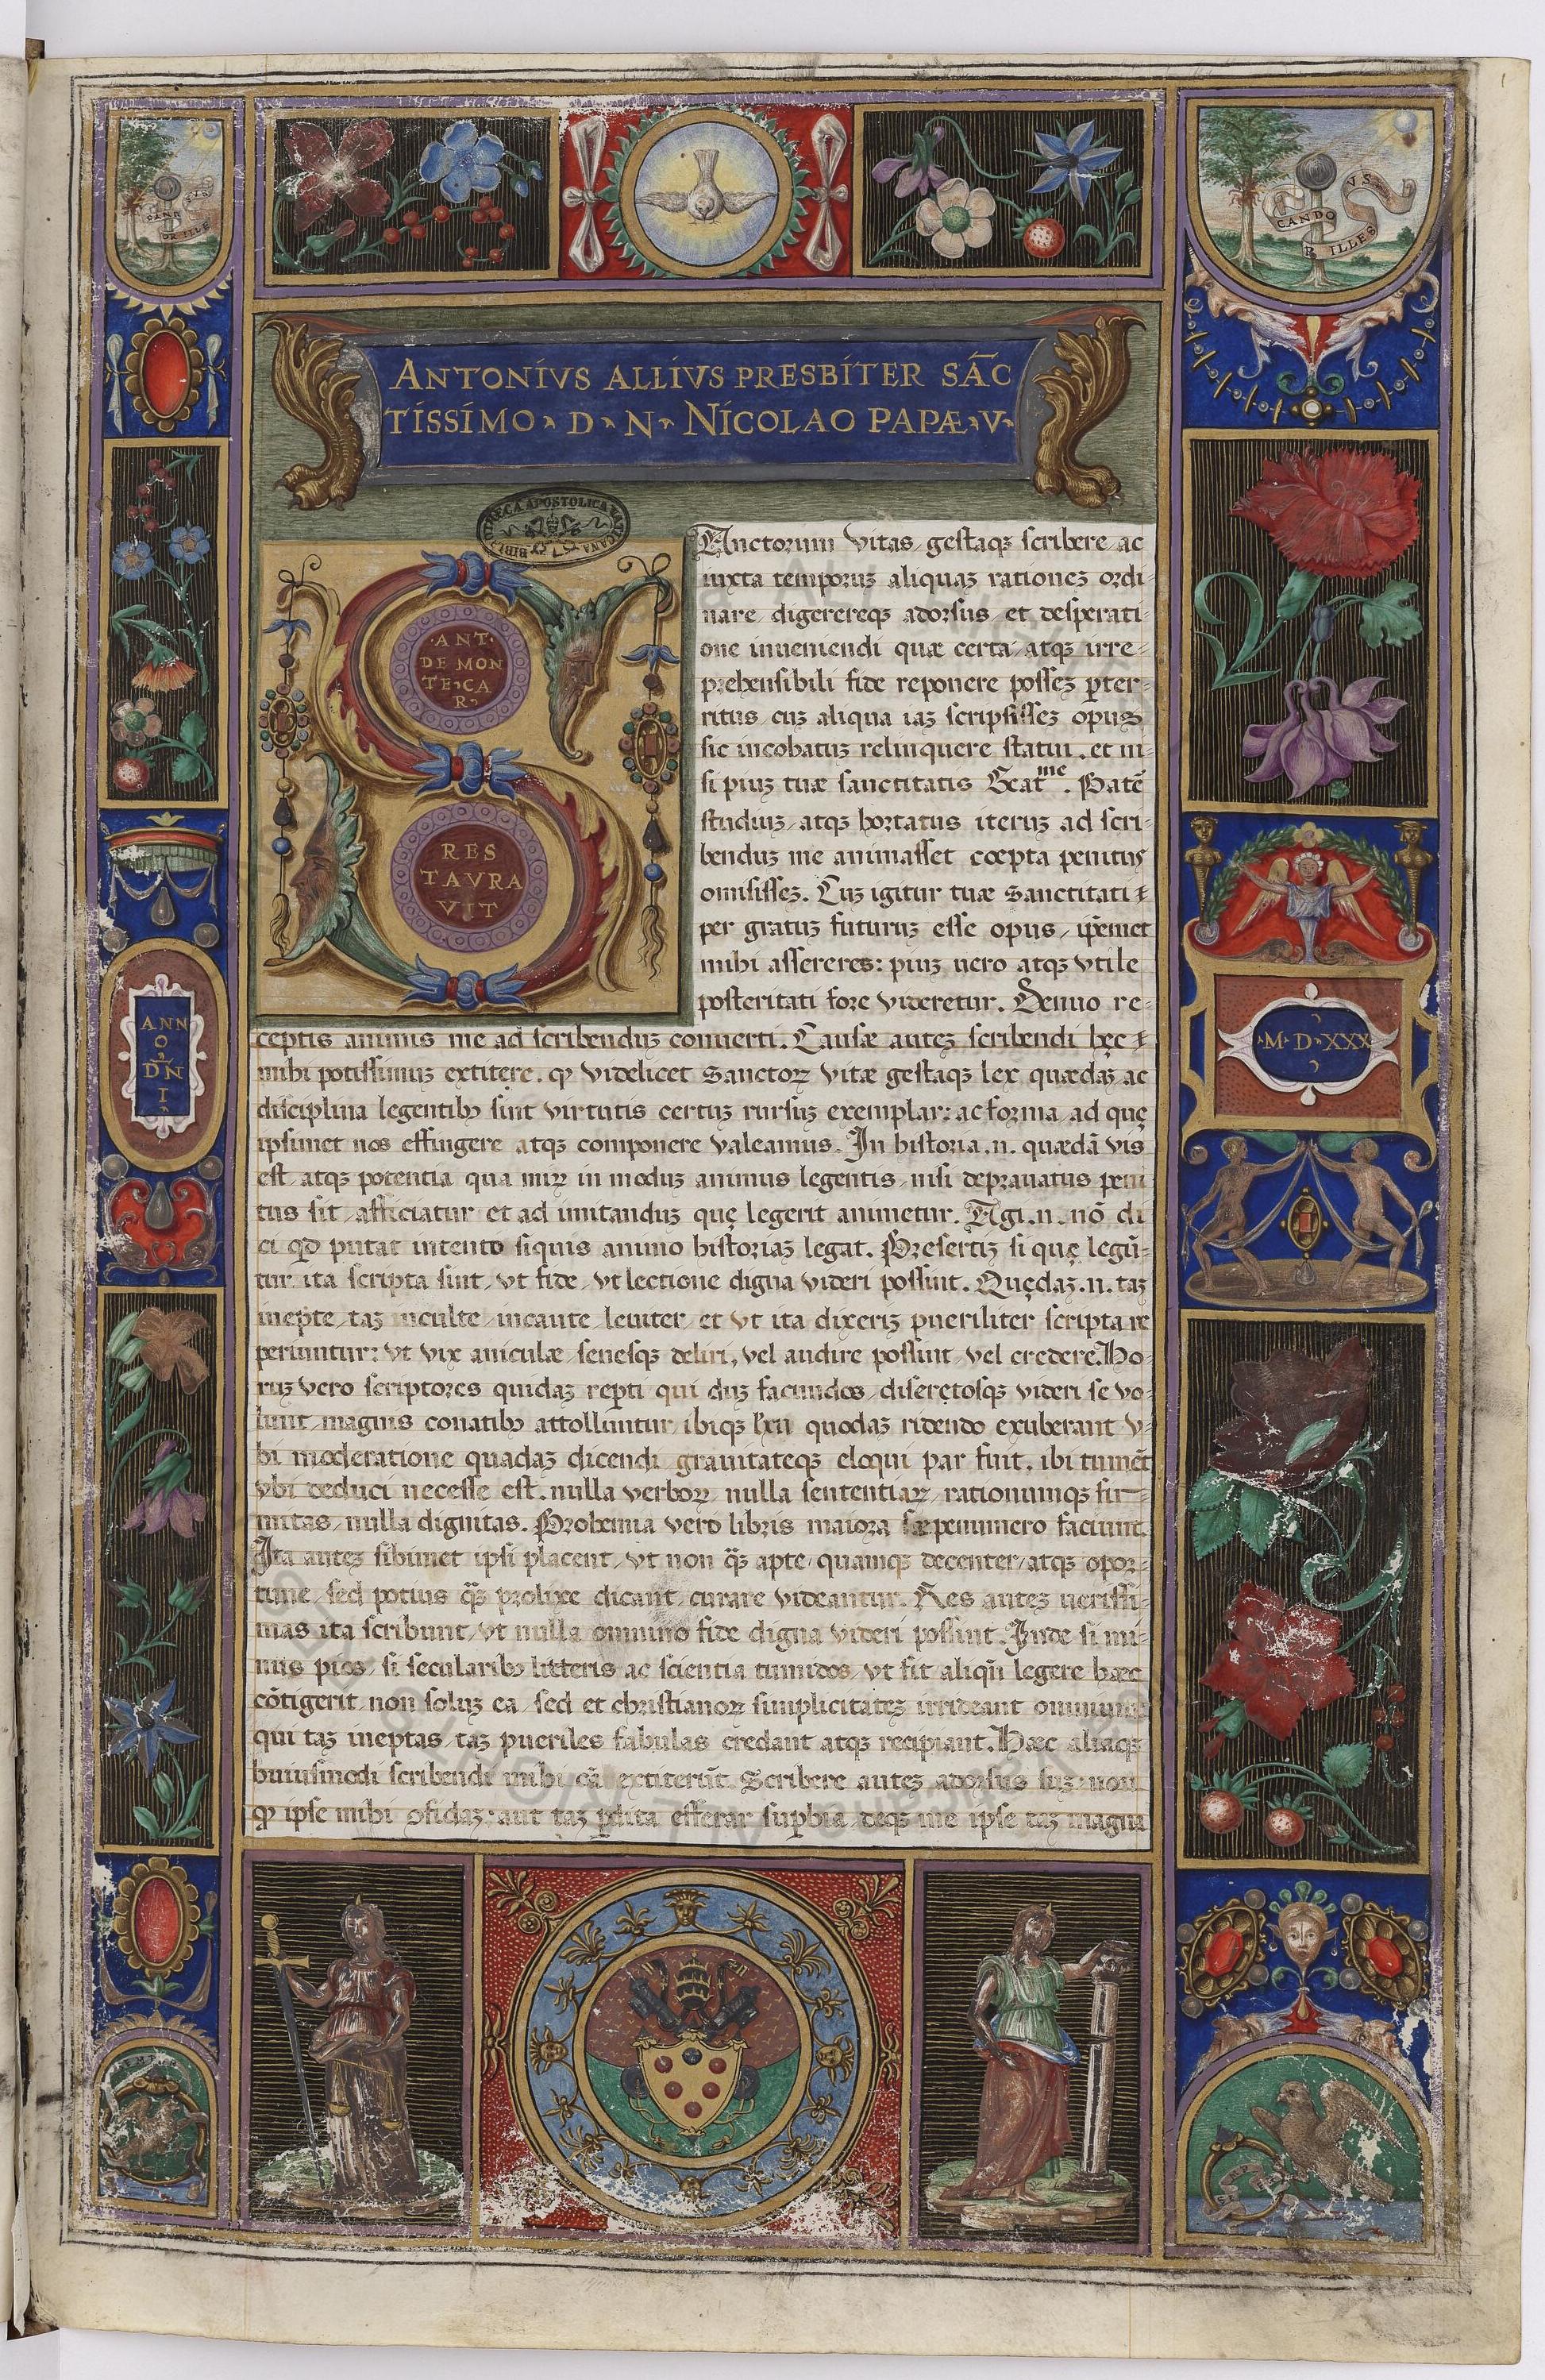 CANDOR ILLESVS
CANDOR ILLESVS
ANTONIVS ALLIVS PRESBITER SAC̄
TISSIMO D N NICOLAO PAPÆ V
BIBLIOTHECA APOSTOLICA VATICANA
ANT
DE MON
TE CA
R
RES
TAVRA
VIT
Sanctorum vitas gestaqꝫ scribere ac
iuxta temporuꝫ aliquaꝫ rationeꝫ ordi-
nare digerereqꝫ adorsus et desperati-
one inueniendi quæ certa atqꝫ irre-
prehensibili fide reponere posseꝫ ꝑter-
ritus cuꝫ aliqua iaꝫ scripsisseꝫ opus
sic incohatuꝫ relinquere statui. et ni-
si piuꝫ tuæ sanctitatis Beatᵐᵉ. Patẽ
studiuꝫ atqꝫ hortatus iteruꝫ ad scri-
benduꝫ me animasset cœpta penitus
omisisseꝫ. Cuꝫ igitur tuæ sanctitati
per gratuꝫ futuruꝫ esse opus ip̃emet
mihi assereres: piuꝫ uero atqꝫ vtile
posteritati fore videretur. Denuo re-
ceptis animis me ad scribenduꝫ conuerti. Causæ auteꝫ scribendi hęc
mihi potissimuꝫ extitere. ꝙ videlicet Sanctoꝝ vitæ gestaqꝫ lex quædaꝫ ac
disciplina legentibꝯ sint virtutis certuꝫ rursuꝫ exemplar: ac forma ad quę
ipsimet nos effingere atqꝫ componere valeamus. In historia .n. quædã vis
est atqꝫ potentia qua miꝝ in moduꝫ animus legentis nisi deprauatus peni
tus sit afficiatur et ad imitanduꝫ quę legerit animetur. Agi .n. nõ di
ci qd̃ putat intento siquis animo historiaꝫ legat. Presertiꝫ si quę legũ-
tur ita scripta sint vt fide vt lectione digna videri possint. Quędaꝫ .n. taꝫ
inepte taꝫ inculte incaute leuiter et vt ita dixeriꝫ pueriliter scripta re
periuntur: vt vix aniculæ senesqꝫ deliri, vel audire possint vel credere. Ho-
ruꝫ vero scriptores quidaꝫ reꝑti qui duꝫ facundos disertosqꝫ videri se vo-
lunt magnis conatibꝯ attolluntur ibiqꝫ quodaꝫ ridendo exuberant v-
bi moderatione quadaꝫ dicendi grauitateqꝫ eloqui par fuit. ibi
vbi deduci necesse est. nulla verboꝝ nulla sententiaꝝ rationumqꝫ fir-
mitas nulla dignitas. Prohemia vero libris maiora sæpenumero faciunt.
Ita auteꝫ sibimet ipsi placent vt non qꝫ apte quamqꝫ decenter atqꝫ opor-
tune sed potius qꝫ prolixe dicant curare videantur. Res auteꝫ uerissi-
mas ita scribunt vt nulla omnino fide digna videri possint. Inde si mi-
nus pios si secularibꝯ litteris ac scientia tumidos vt fit aliqñ legere hæc
cõtigerit non soluꝫ ea sed et christianoꝝ simplicitateꝫ irrideant omnium
qui taꝫ ineptas taꝫ pueriles fabulas credant atqꝫ recipiant. Hæc aliaqꝫ
huiusmodi scribendi mihi cã extiterũt. Scribere auteꝫ adorsus suꝫ non
ꝙ ipse mihi ꝯfidaꝫ aut taꝫ ꝑdita efferar suꝑbia deqꝫ me ipse taꝫ magna
ANN
O
DN
I
M D XXX
SEMPER
SEMPER